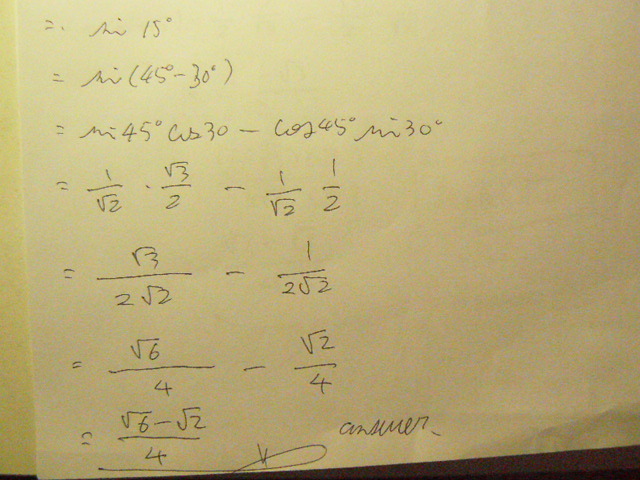 ∴ sin 15°
= sin(45°-30°)
= sin45°cos30 - cos45°sin30°
= 1/√2 · √3/2 - 1/√2 1/2
= √3/2√2 - 1/2√2
= √6/4 - √2/4
= √6-√2/4 answer.